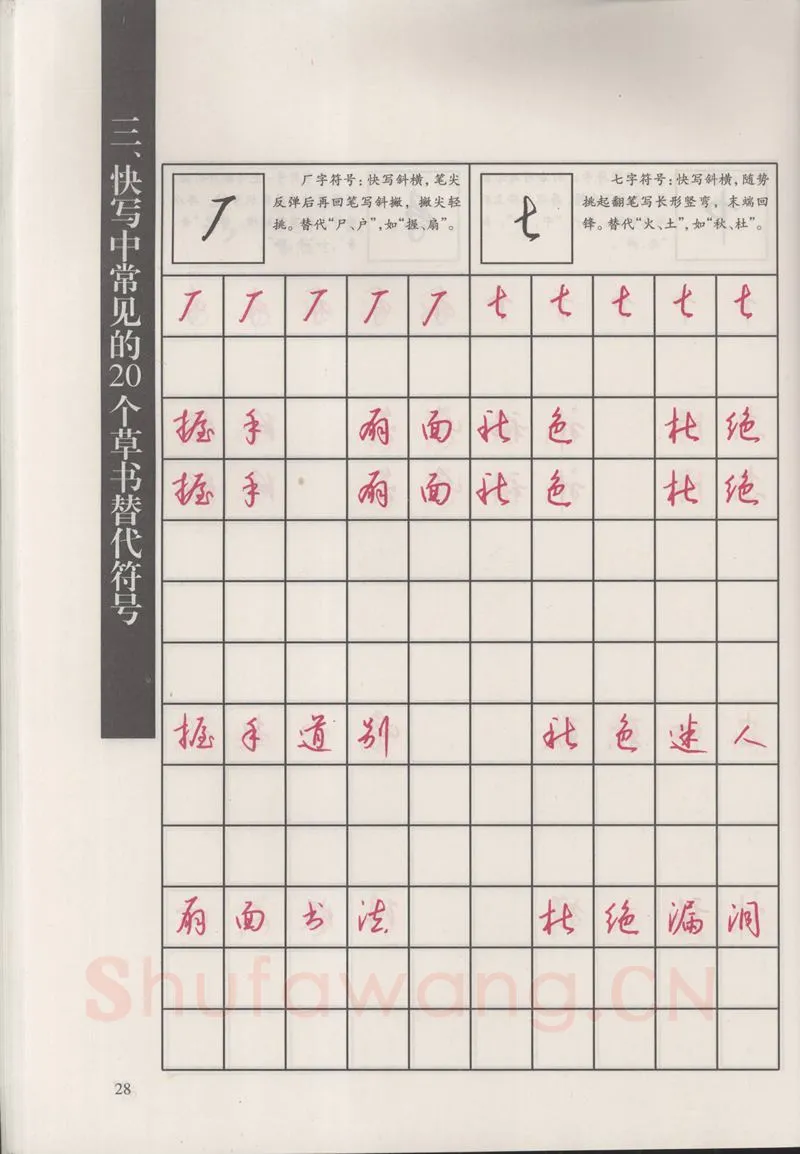 三、快写中常见的20个草书替代符号
厂
厂字符号：快写斜横，笔尖
反弹后再回笔写斜撇，撇尖轻
挑。替代“尸、户”，如“握、扇”。
七
七字符号：快写斜横，随势
挑起翻笔写长形竖弯，末端回
锋。替代“火、土”，如“秋、杜”。
厂 厂 厂 厂 厂 七 七 七 七 七
握手 扇面 秋色 杜绝
握手 扇面 秋色 杜绝
握手道别 秋色迷人
扇面书法 杜绝漏洞
Shufawang.CN
28